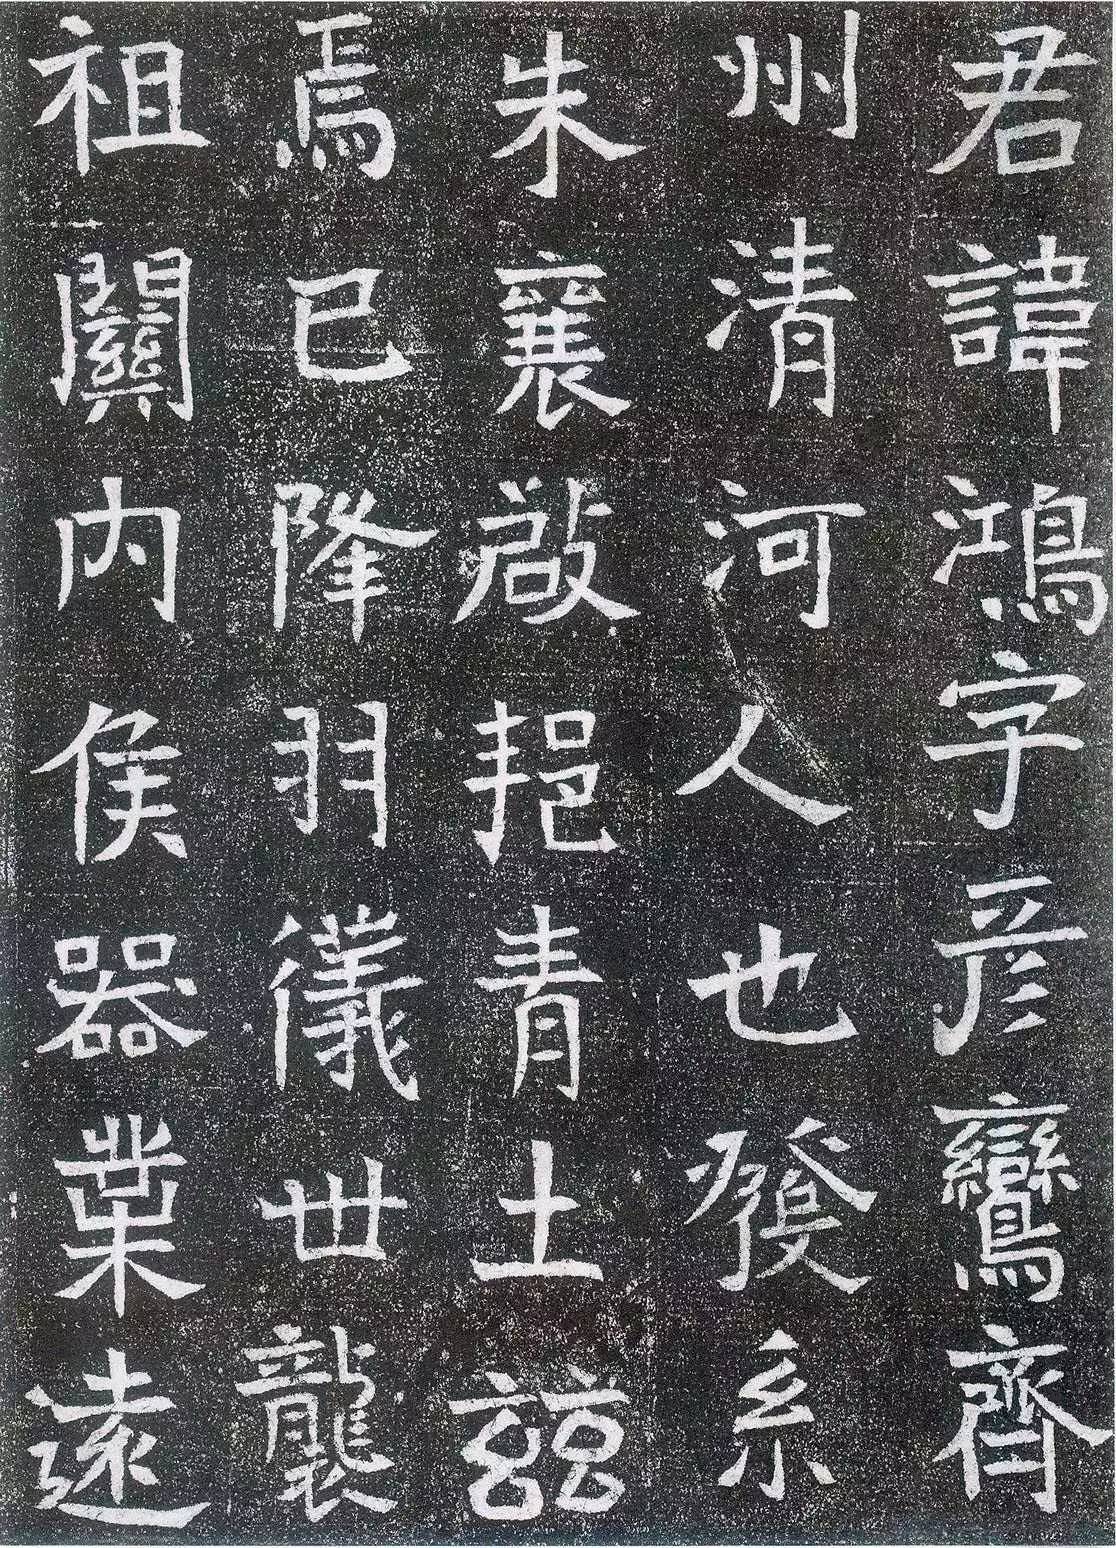 君諱鴻字彦鸞齊
州清河人也發系
朱襄啟挹青土玆
焉已降羽儀世襲
祖關內侯器業遠